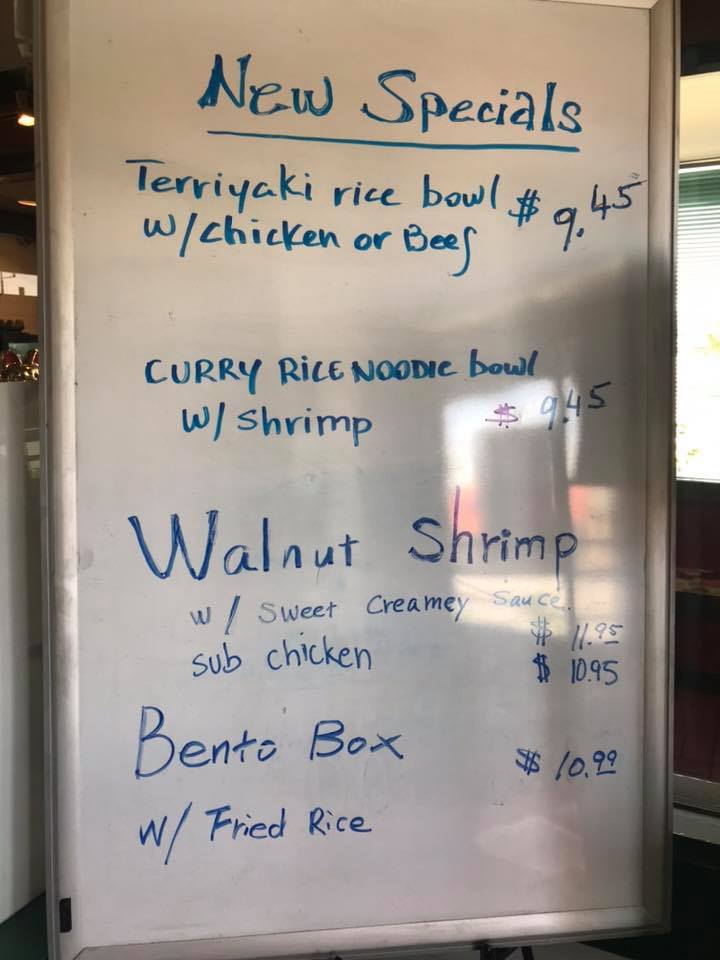 New Specials
Terriyaki rice bowl $ 9.45
w/chicken or Beef
CURRY RICE NOODLE bowl
w/ shrimp $ 9.45
Walnut Shrimp
w/ sweet creamey sauce.
$ 11.95
sub chicken $ 10.95
Bento Box $ 10.99
w/ Fried Rice